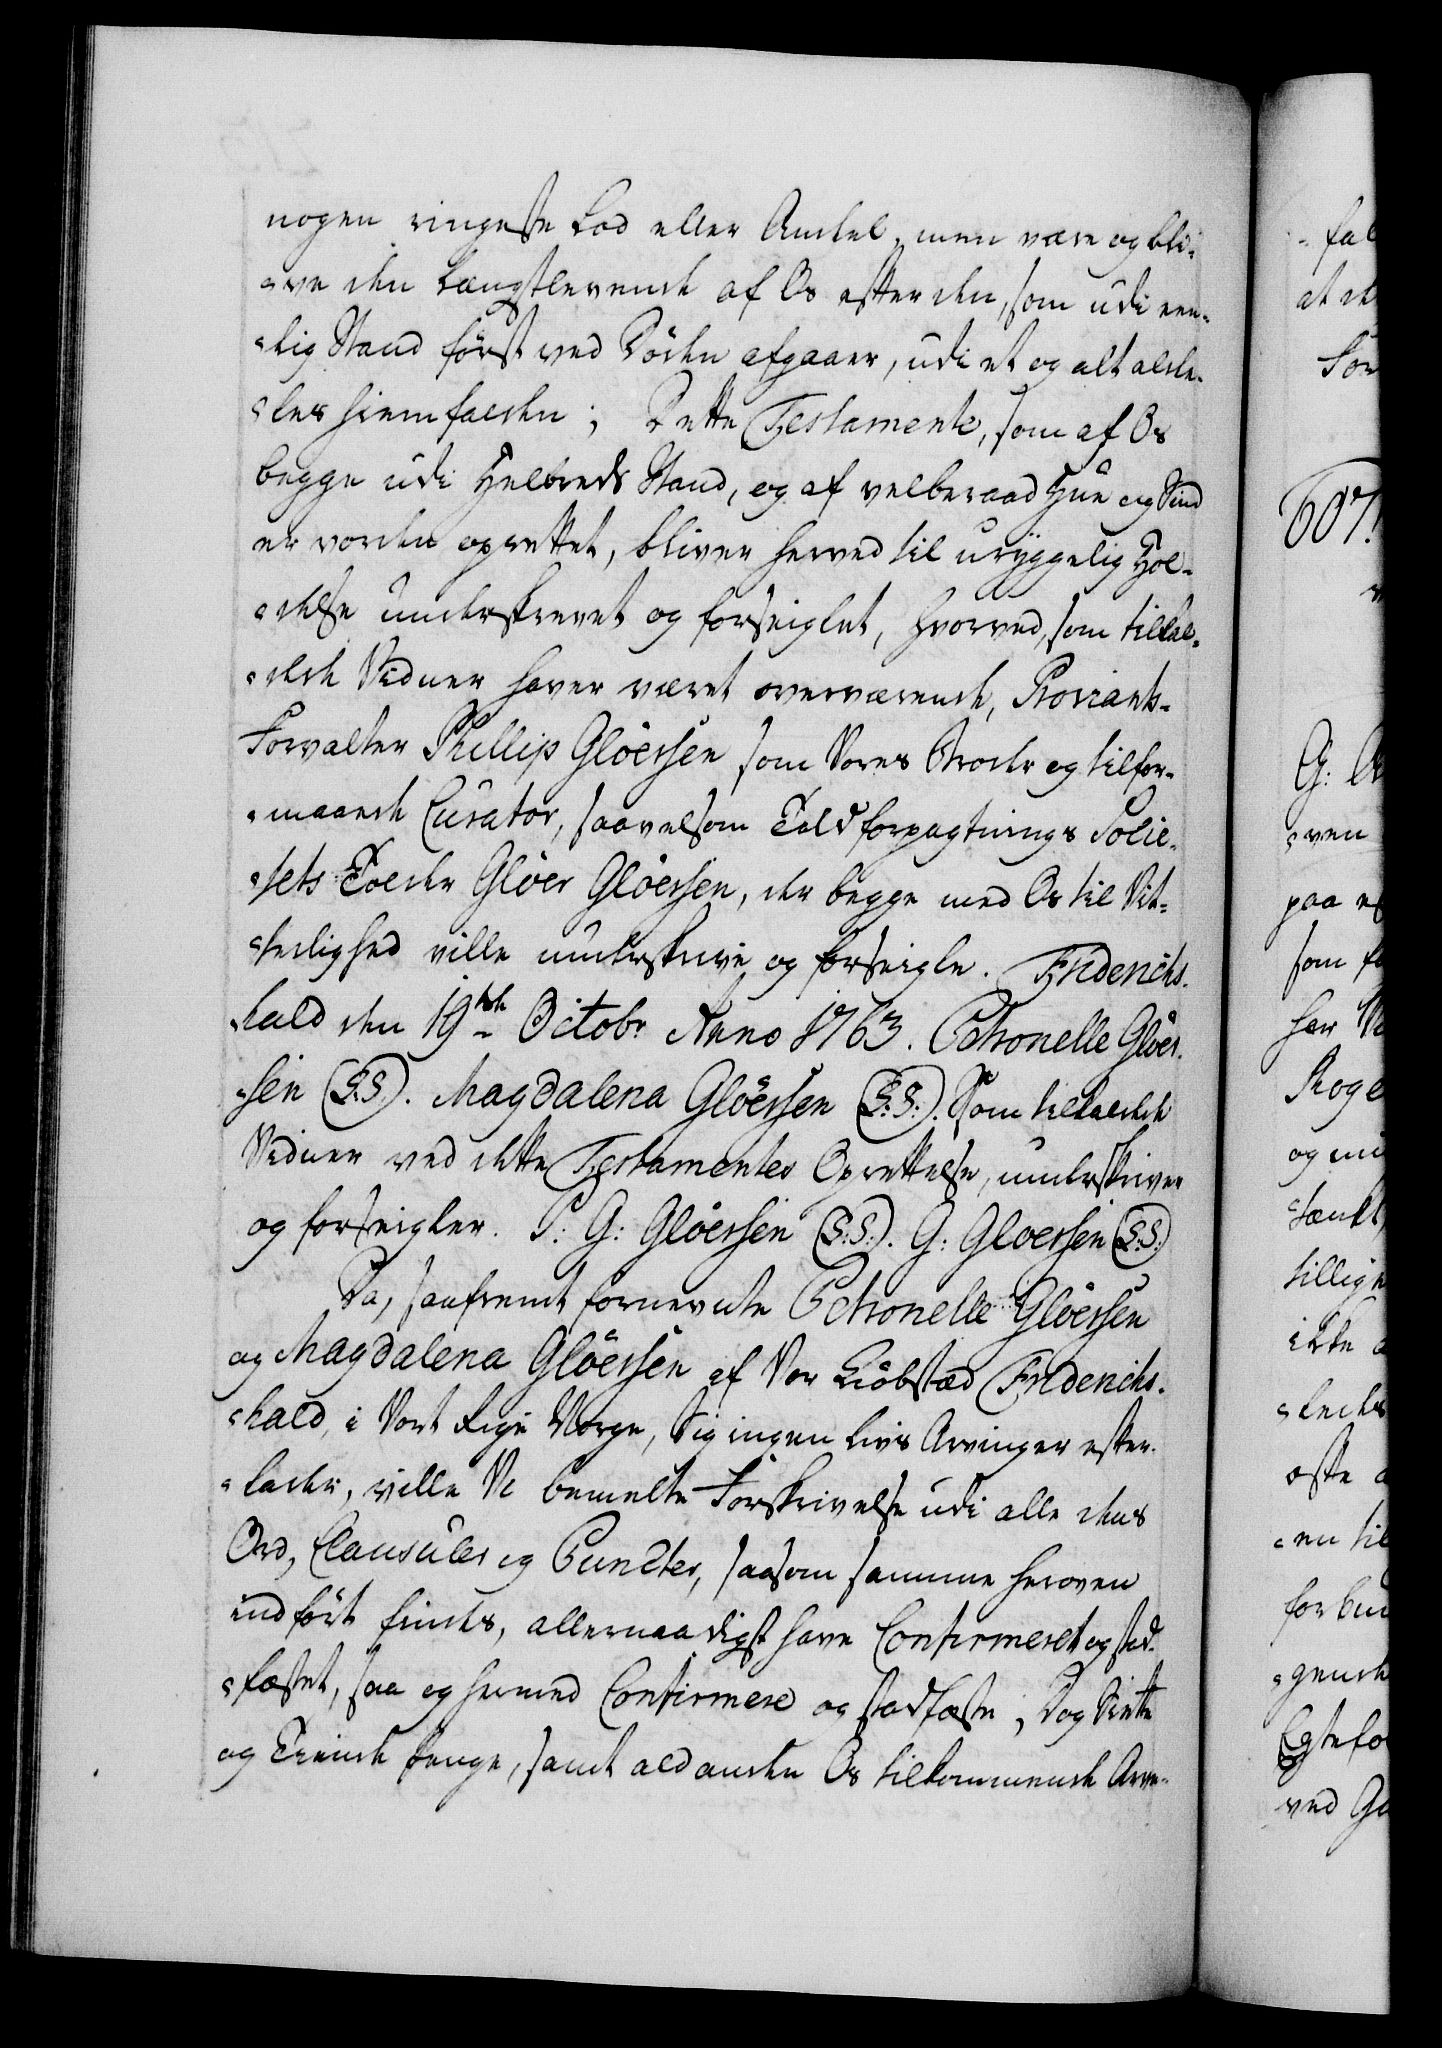 nogen ringeste Lod eller Andel, men være og bli-
-ve den Længstlevende af Os efter den, som udi een-
-lig Stand først ved Døden afgaaer, udi et og alt alde-
-les hiemfalden; Dette Testamente, som af Os
begge udi Helbreds Stand, og af velberaad Hue og Sind
er vorden oprettet, bliver herved til uryggelig Hol-
-delse underskrevet og forseiglet, hvorved, som tilkal-
-dede Vidner haver været overværende, Proviants-
Forvalter Phillip Gløersen som Vores Broder og tilfor-
-maaede Curator, saavelsom Toldforpagtnings Socie-
-tets Tolder Gløer Gløersen, der begge med Os til Vit-
-terlighed ville underskrive og forseigle. Friderichs-
-hald den 19de Octobr Anno 1763. Petronelle Gløer-
-sen (L.S.). Magdalena Gløersen (L:S:). Som tilkaldede
Vidner ved dette Testamentes Oprettelse, underskriver
og forseigler. P: G: Gløersen (L:S:). G: Gloersen (L:S:)
Da, saafremt fornevnte Petronelle Gløersen
og Magdalena Gløersen af Vor Kiøbstæd Friderichs-
-hald, i Vort Rige Norge, Sig ingen Livs Arvinger efter-
-lader, ville Vi bemelte Forskrivelse udi alle dens
Ord, Clausuler og Puncter, saasom samme heroven
indført findes, allernaadigst have Confirmeret og stad-
-fæstet, saa og hermed Confirmere og stadfæste; Dog Siette
og Tiende Penge, samt ald anden Os tilkommende Arve-
fal
at de
For
607.
G: A
-ven
paa
som
har
Roge
og
tillig
ikke
-en til
-gende
Egtefo
ved